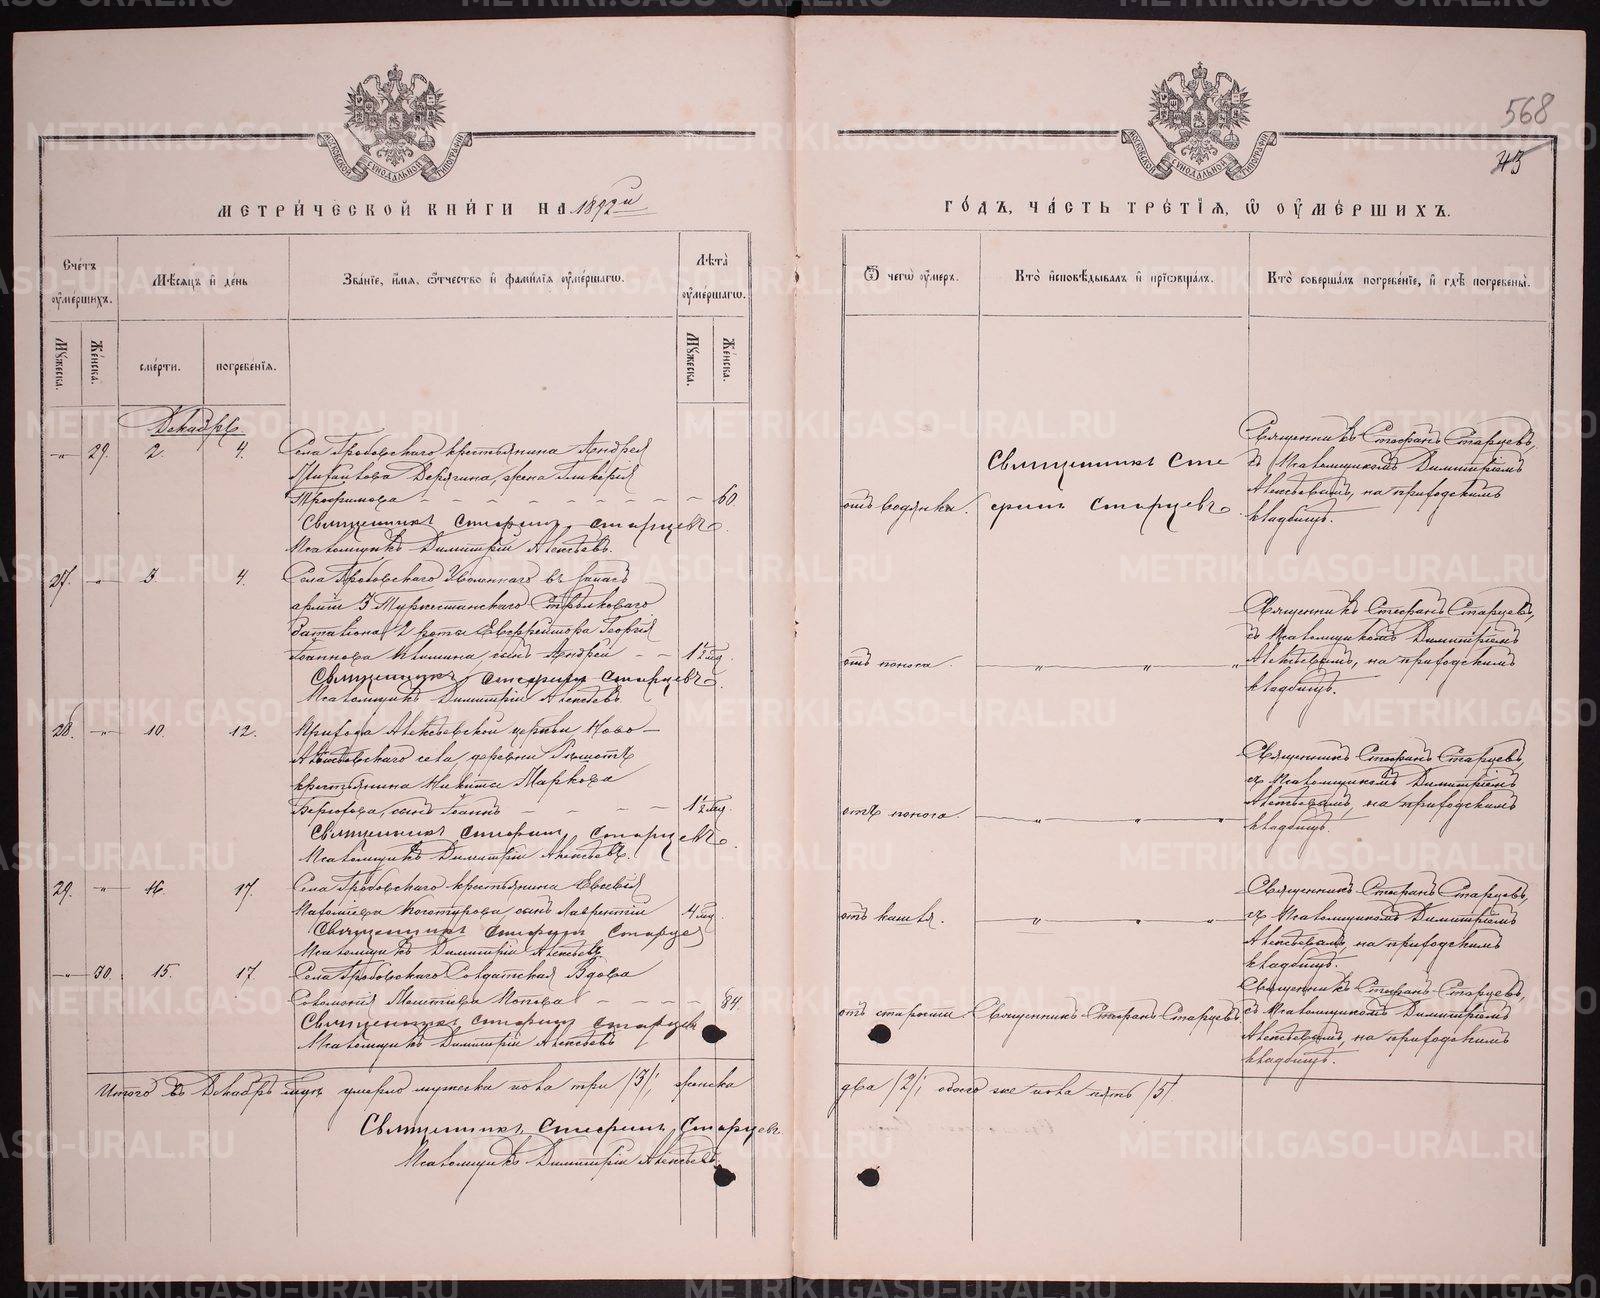 568
43
МЕТРИ́ЧЕСКОЙ КНИ́ГИ НА 1892й
ГО́ДЪ, ЧА́СТЬ ТРЕ́ТІѦ, Ѡ ОУ҆МЕ́РШИХЪ.
Сче́тъ оу҆ме́ршихъ.
Мѣ́сѧцъ и҆ де́нь
Зва́нїе, и҆́мѧ, ѻ҆́тчество и҆ фами́лїѧ оу҆ме́ршагѡ.
Лѣ́та оу҆ме́ршагѡ.
Ѿ чегѡ̀ оу҆́меръ.
Кто̀ и҆сповѣ́дывалъ и҆ прїѡбща́лъ.
Кто̀ соверша́лъ погребе́нїе, и҆ гдѣ̀ погребены̀.
Мꙋ́жеска.
Же́нска.
сме́рти.
погребе́нїѧ.
Мꙋ́жеска.
Же́нска.
Декабрь
-„- 29. 2. 4. Села Гробовскаго крестьянина Андрея
Дерягина, жена Гликерія
Трофимова 60.
Священникъ Стефанъ Старцевъ.
Псаломщикъ Димитрій Алексѣевъ.
отъ водянки.
Священникъ Сте
фанъ Старцевъ.
Священникъ Стефанъ Старцевъ,
съ Псаломщикомъ Димитріемъ
Алексѣевымъ, на приходскомъ
кладбищѣ.
27. -„- 3. 4. Села Гробовскаго Уволеннаго въ запасъ
арміи 3 Туркестанскаго Стрѣлковаго
баталіона, 2 роты Ефрейтора Георгія
сынъ Андрей 1½ мц.
Священникъ Стефанъ Старцевъ.
Псаломщикъ Димитрій Алексѣевъ.
отъ поноса.
„ „ „
Священникъ Стефанъ Старцевъ,
съ Псаломщикомъ Димитріемъ
Алексѣевымъ, на приходскомъ
кладбищѣ.
28. -„- 10. 12. Прихода Алексѣевской церкви Ново-
Алексѣевскаго села, деревни
крестьянина Никиты Маркова
сынъ Іоаннъ 1½ мц.
Священникъ Стефанъ Старцевъ.
Псаломщикъ Димитрій Алексѣевъ.
отъ поноса.
„ „
Священникъ Стефанъ Старцевъ,
съ Псаломщикомъ Димитріемъ
Алексѣевымъ, на приходскомъ
кладбищѣ.
29. -„- 16. 17. Села Гробовскаго крестьянина Евсевія
сынъ Лаврентій 4 мц.
Священникъ Стефанъ Старцев
Псаломщикъ Димитрій Алексѣевъ
отъ кашля.
„ „ „
Священникъ Стефанъ Старцевъ,
съ Псаломщикомъ Димитріемъ
Алексѣевымъ, на приходскомъ
кладбищѣ.
-„- 30. 15. 17. Села Гробовскаго Солдатская Вдова
Соломонія Попова 84.
Священникъ Стефанъ Старцевъ
Псаломщикъ Димитрій Алексѣевъ
отъ старости
Священникъ Стефанъ Старцевъ.
Священникъ Стефанъ Старцевъ,
съ Псаломщикомъ Димитріемъ
Алексѣевымъ, на приходскомъ
кладбищѣ.
Итого въ Декабрѣ мцѣ умерло мужеска пола три /3/, женска
два /2/, обоего же пола пять /5/
Священникъ Стефанъ Старцевъ
Псаломщикъ Димитрій Алексѣевъ.
METRIKI.GASO-URAL.RU